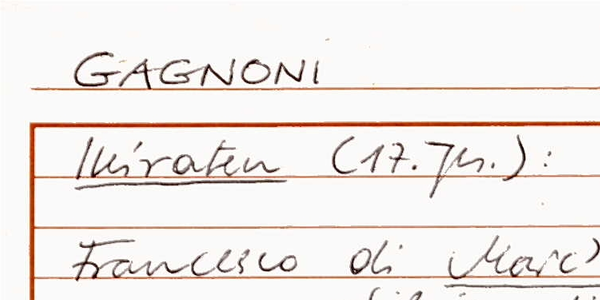 GAGNONI
Heiraten (17. Jh.):
Francesco di